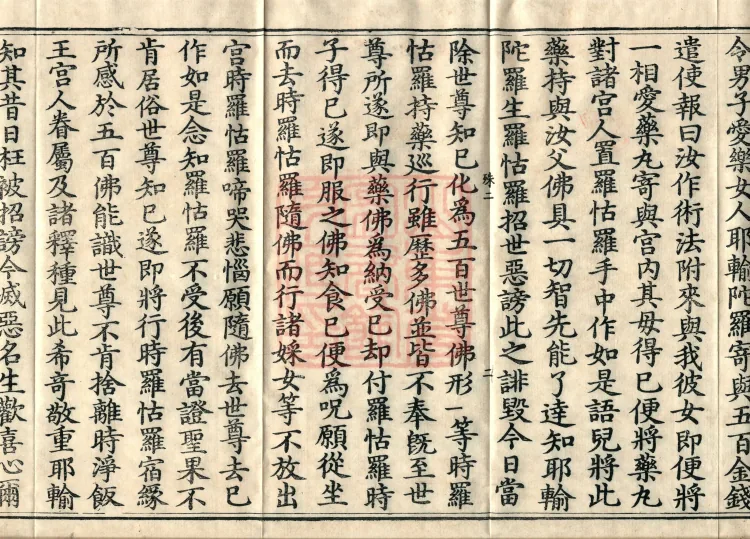 令男子愛藥女人耶輸陀羅寄與五百金錢
遣使報曰汝作術法附來與我彼女即便將
一相愛藥丸寄與宮內其母得已便將藥丸
對諸宮人置羅怙羅手中作如是語兒將此
藥持與汝父佛具一切智先能了達知耶輸
陀羅生羅怙羅招世惡謗此之誹毀今日當
殊二
二
除世尊知已化為五百世尊佛形一等時羅
怙羅持藥巡行雖歷多佛並皆不奉旣至世
尊所遂即與藥佛為納受已却付羅怙羅時
子得已遂即服之佛知食已便為呪願從坐
而去時羅怙羅隨佛而行諸婇女等不放出
宮時羅怙羅啼哭悲惱願隨佛去世尊去已
作如是念知羅怙羅不受後有當證聖果不
肯居俗世尊知已遂即將行時羅怙羅宿緣
所感於五百佛能識世尊不肯捨離時淨飯
王宮人眷屬及諸釋種見此希奇敬重耶輸
知其昔日枉被招謗今滅惡名生歡喜心爾